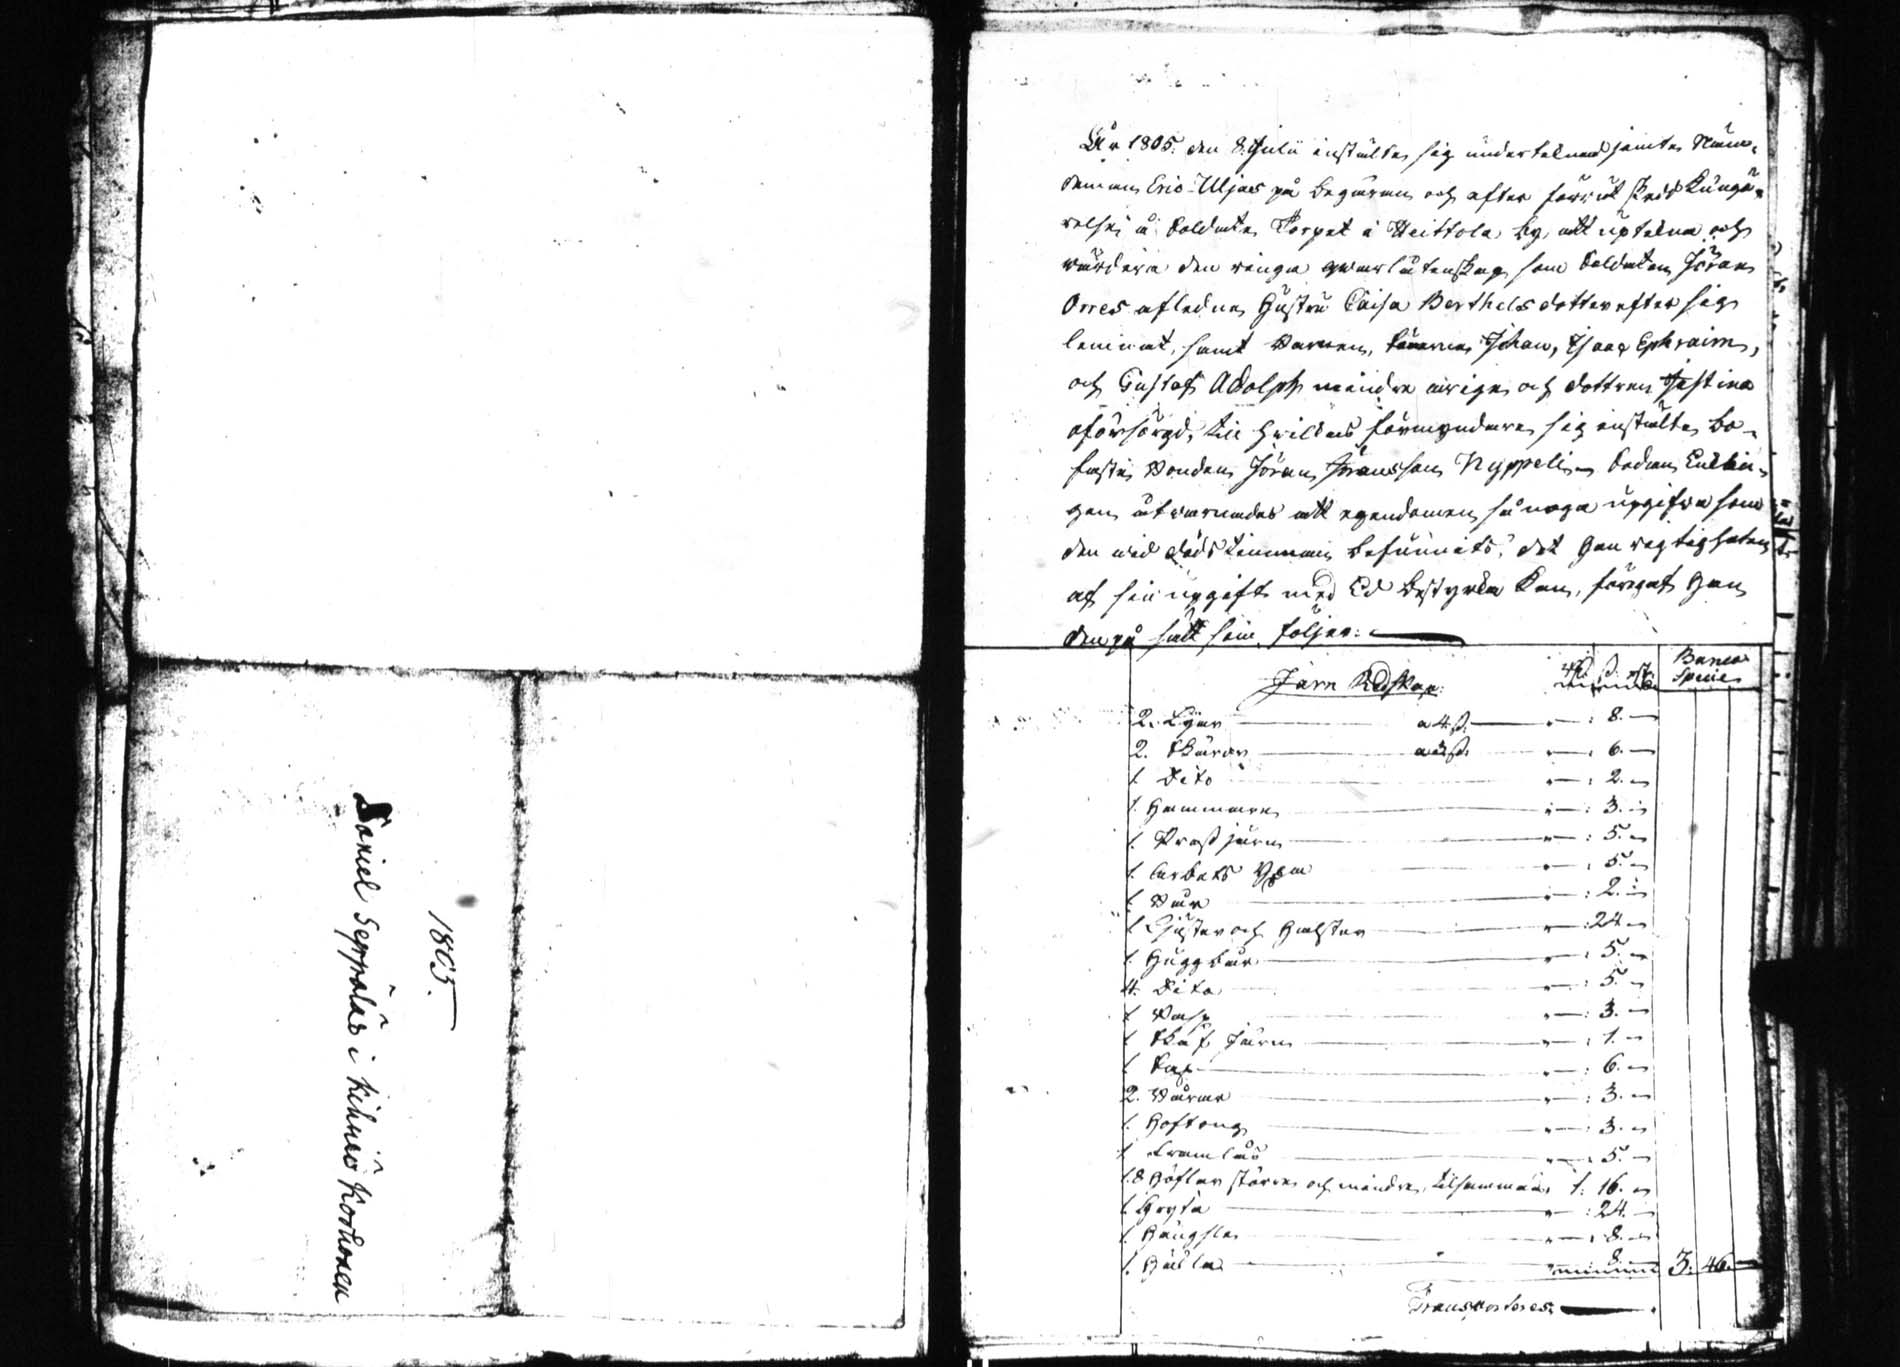 1805.
Daniel Seppäläs i Kihniö Korhonen
År 1805. den 8. Julii instälte sig underteknad jämte Näm-
deman Eric Uljas på begäran och efter förrut skedd Kungö-
relse å Soldate Torpet i Heittola by, att uptekna och
värdera den ringa qvarlåtenskap som Soldaten Jöran
Orres afledne Hustru Caisa Berthels dotter efter sig
lemnat, samt Barnen, Sönerne Johan, Isaac Ephraim,
och Gustaf Adolph mindre årige och dottren Justina
oförsörgd, till hvilkas förmyndare sig instälte bo-
faste Bonden Jöran Jöransson Nyppeli. Sedan Enklin-
gen åtvarnades att egendomen så noga upgifva som
den vid döds timman befunnits, det han rigtigheten
af sin upgift med Ed bestyrka kan, förgat han
den på sätt som följer:
Järn Redskap: Banco Specie
2. Lyar a 4 ß. 8.
2. Skäror a 3 ß. 6.
1. Dito 2.
1. Hammare 3.
1. järn 5.
1. arbets Yxa 5.
1. 2.
1 Ljuster och Halster 24
1. Huggbår 5.
4. Dito 5.
1 3.
1 Skaf Järn 1.
1 Sax 6.
2. 3.
1. Hoftong 3.
1 5.
18 Höflar större och mindre, tilsammans 1: 16.
1. Gryta 24.
1. Hängsle 8.
1. 8 3: 46.
Transporteres: